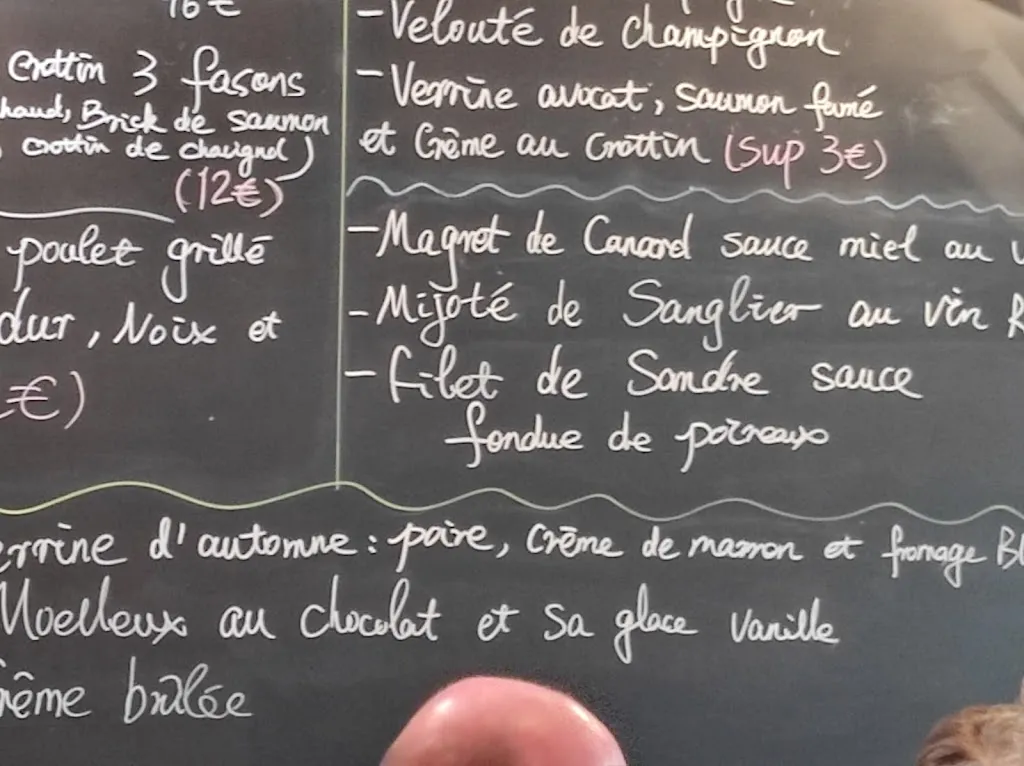 16€
Crottin 3 façons
haud, Brick de saumon
, crottin de chavignol)
(12€)
poulet grillé
dur, Noix et
€)
- Velouté de champignon
- Verrine avocat, saumon fumé
et Crème au Crottin (sup 3€)
- Magret de Canard sauce miel au v
- Mijoté de Sanglier au vin R
- Filet de Sandre sauce
fondue de poireaux
errine d'automne : poire, crème de marron et fromage Bl
Moelleux au chocolat et sa glace vanille
rème brûlée